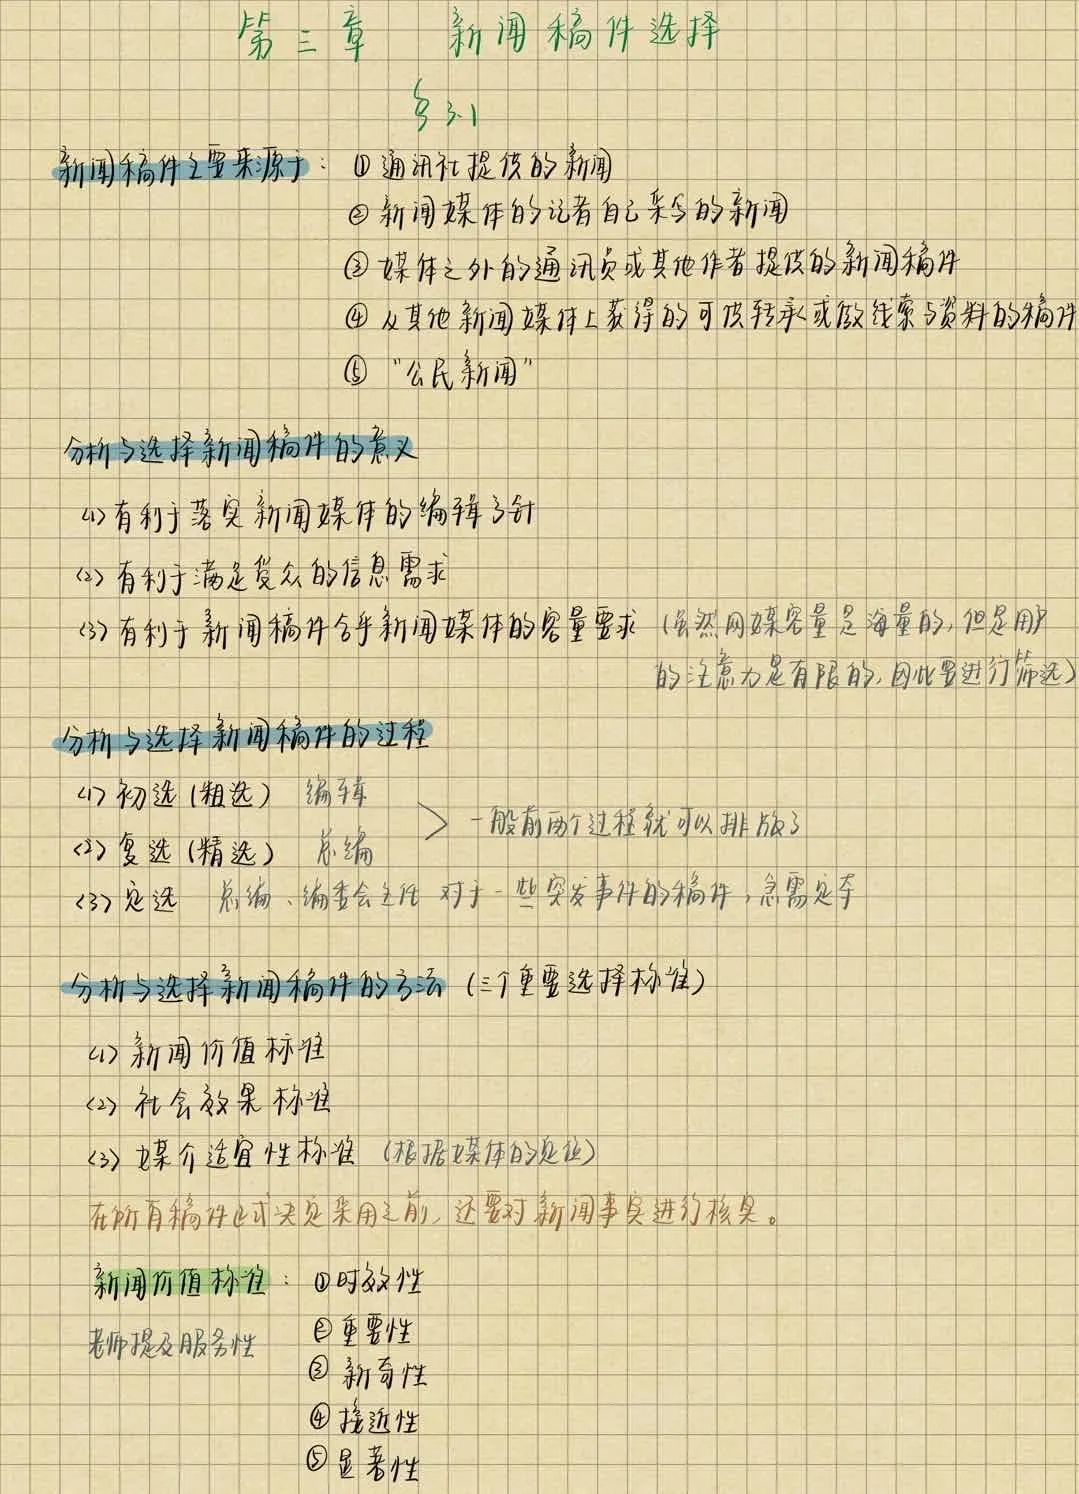 第三章 新闻稿件选择
§3.1
新闻稿件主要来源于: ①通讯社提供的新闻
②新闻媒体的记者自己采写的新闻
③媒体之外的通讯员或其他作者提供的新闻稿件
④从其他新闻媒体上获得的可供转承或做线索与资料的稿件
⑤“公民新闻”
分析与选择新闻稿件的意义
(1)有利于落实新闻媒体的编辑方针
(2)有利于满足受众的信息需求
(3)有利于新闻稿件合乎新闻媒体的容量要求 (虽然网媒容量是海量的,但是用户
的注意力是有限的,因此要进行筛选)
分析与选择新闻稿件的过程
(1)初选(粗选) 编辑
> 一般前两个过程就可以排版了
(2)复选(精选) 总编
(3)定选 总编、编委会主任 对于一些突发事件的稿件,急需定夺
分析与选择新闻稿件的方法 (三个重要选择标准)
(1)新闻价值标准
(2)社会效果标准
(3)媒介适宜性标准 (根据媒体的定位)
在所有稿件正式决定采用之前,还要对新闻事实进行核实。
新闻价值标准: ①时效性
老师提及服务性 ②重要性
③新奇性
④接近性
⑤显著性